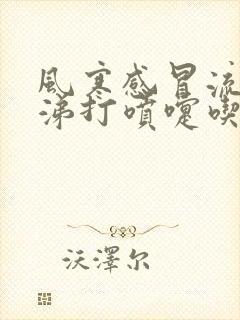 風寒感冒流
涕打噴嚏喫
沃澤尔